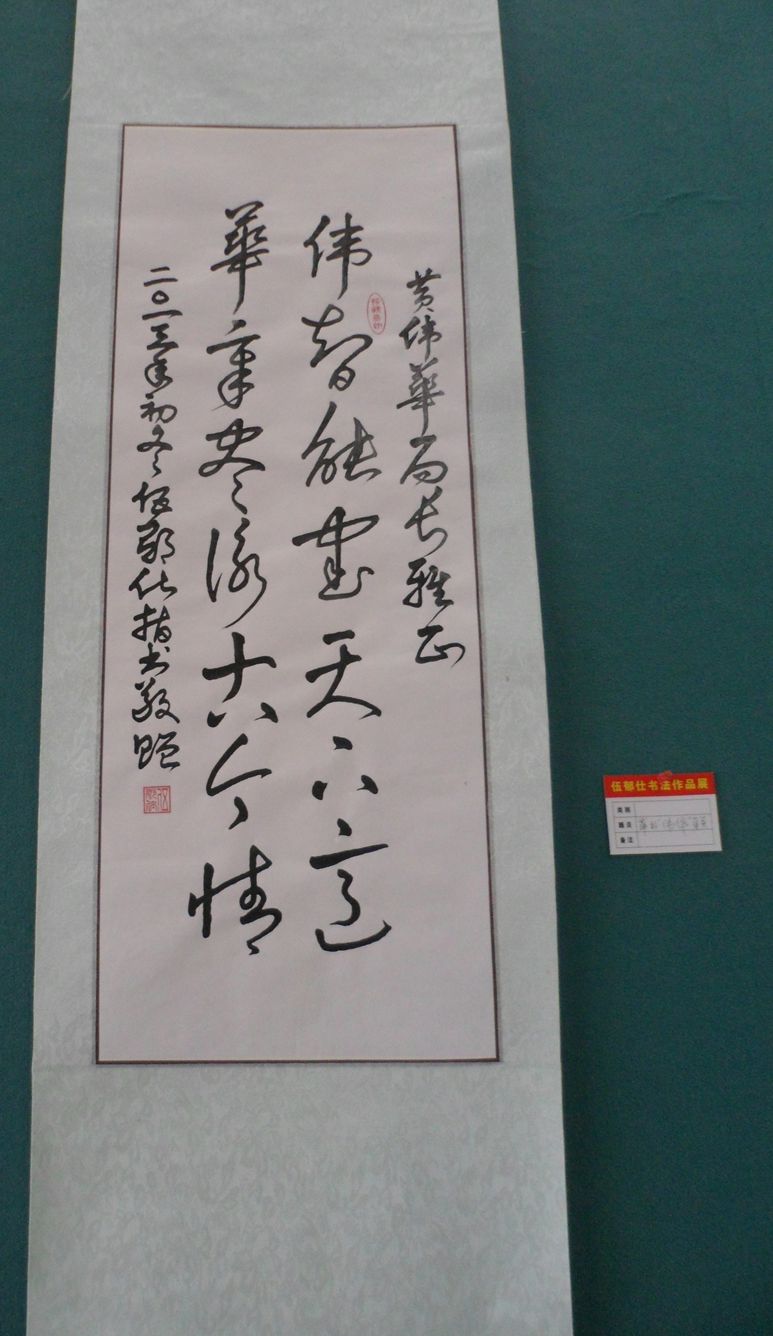 黄伟華局长雅正
伟智能画天下意
華章尽咏古今情
二〇一三年初冬伍郁仕指书敬赠
伍郁仕书法作品展
类别
题目
备注